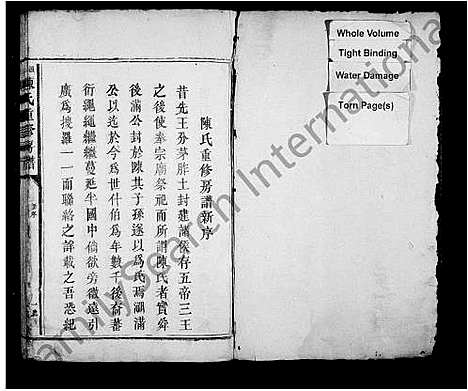 陳氏重修房譜新序
昔先王分茅胙土封建諸侯存五帝三王
之後使奉宗廟祭祀而所謂陳氏者實舜
後滿公封於陳其子孫遂以為氏焉溯滿
公以迄於今為世什伯為年數千後裔蕃
衍繩繩繼繼蔓延半國中倘欲旁徵遠引
廣為搜羅一一而聯將之詳載之吾恐紀
陳氏重修房譜
Whole Volume
Tight Binding
Water Damage
Torn Page(s)
FamilySearch International